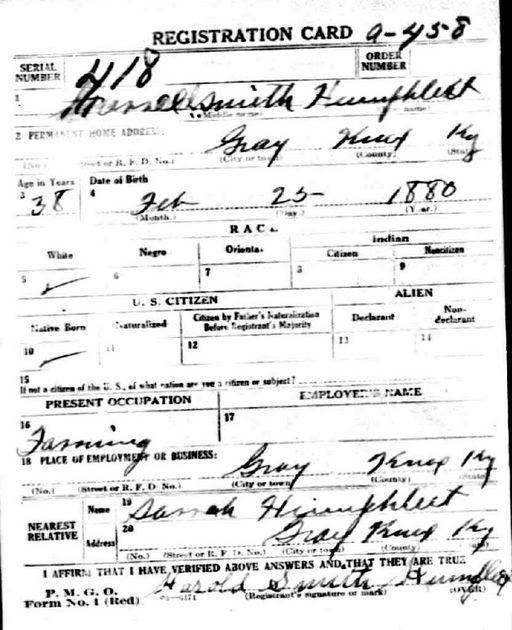 REGISTRATION CARD a-458
SERIAL NUMBER 418 ORDER NUMBER
1 smith Humphleet
(Middle name) name)
2 PERMANENT HOME ADDRESS:
Gray Knux Ky
(No.) (Street or R. F. D. No.) (City or town) (County) (State)
Age in Years Date of Birth
3 38 4 Feb 25 1880
(Month.) (Day.) (Year.)
RACE
White Negro Oriental Indian
Citizen Noncitizen
5 6 7 8 9
U. S. CITIZEN ALIEN
Native Born Naturalized Citizen by Father's Naturalization Before Registrant's Majority Declarant Non-declarant
10 11 12 13 14
15
If not a citizen of the U. S., of what nation are you a citizen or subject?
PRESENT OCCUPATION EMPLOYER'S NAME
16 17
Farming
18 PLACE OF EMPLOYMENT OR BUSINESS:
Gray Knux Ky
(No.) (Street or R. F. D. No.) (City or town) (County) (State)
NEAREST RELATIVE Name 19 Sarrah Humphleet
Address 20 Gray Knux Ky
(No.) (Street or R. F. D. No.) (City or town) (County) (State)
I AFFIRM THAT I HAVE VERIFIED ABOVE ANSWERS AND THAT THEY ARE TRUE
P. M. G. O.
Form No. 1 (Red) Harold Smith Humfleet
(Registrant's signature or mark) (OVER)